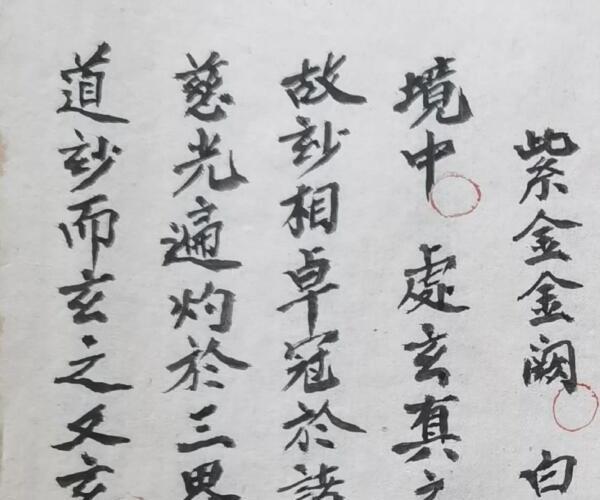 紫金金阙 白
境中 處玄真
故玅相卓冠於諸
慈光遍灼於三界
道玅而玄之又玄